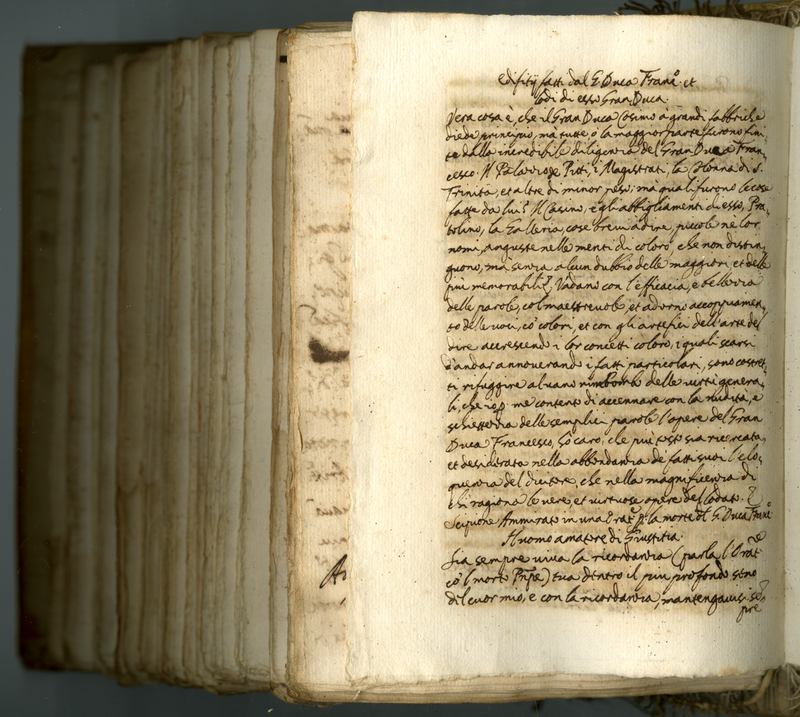 edifitij fatti dal G. Duca Franc.º et
lodi di esso Gran Duca.
Vera cosa è, che il Gran Duca Cosimo à grandi fabbriche
diede principio, mà tutte, ò la maggior parte furono fini,
te dalla incredibile diligenza del Gran Duca Fran,
cesco. Il Palazzo de Pitti, i Magistrati, la Colonna di S.
Trinita, et altre di minor peso; mà quali furono le cose
fatte da lui? Il Casino, e gli abbigliamenti di esso, Pra,
tolino, la Galleria, cose brevi à dire, piccole nè lor
nomi, anguste nelle menti di coloro, che non distin,
guono, mà senza alcun dubbio delle maggiori, et delle
più memorabili. Vadano con l'efficacia, e bellezza
delle parole, col maestrevole, et adorno accoppiamen,
to delle voci, co' colori, et con gli artefici dell'arte del
dire accrescendo i lor concetti coloro, i quali scarsi
d'andar annoverando i fatti particolari, sono costret,
ti rifuggire al vano rimbombo delle virtù genera,
li, che io p. me contento di accennare con la nudità, e
schiettezza delle semplici parole l'opere del Gran
Duca Francesco, hò caro, che più tosto sia ricercata,
et desiderata nella abbondanza de fatti suoi l'elo,
quenza del dicitore, che nella magnificenza di
chi ragiona le vere, et virtuose opere del lodato.
Scipione Ammirato in una Oraz.e p. la morte del G. Duca Franc.º
Huomo amatore di Giustitia.
Sia sempre viva la ricordanza (parla l'Orat.e
co'l morto Prñpe) tua dentro il più profondo seno
del cuor mio, e con la ricordanza, mantengavisi sẽ,
pre